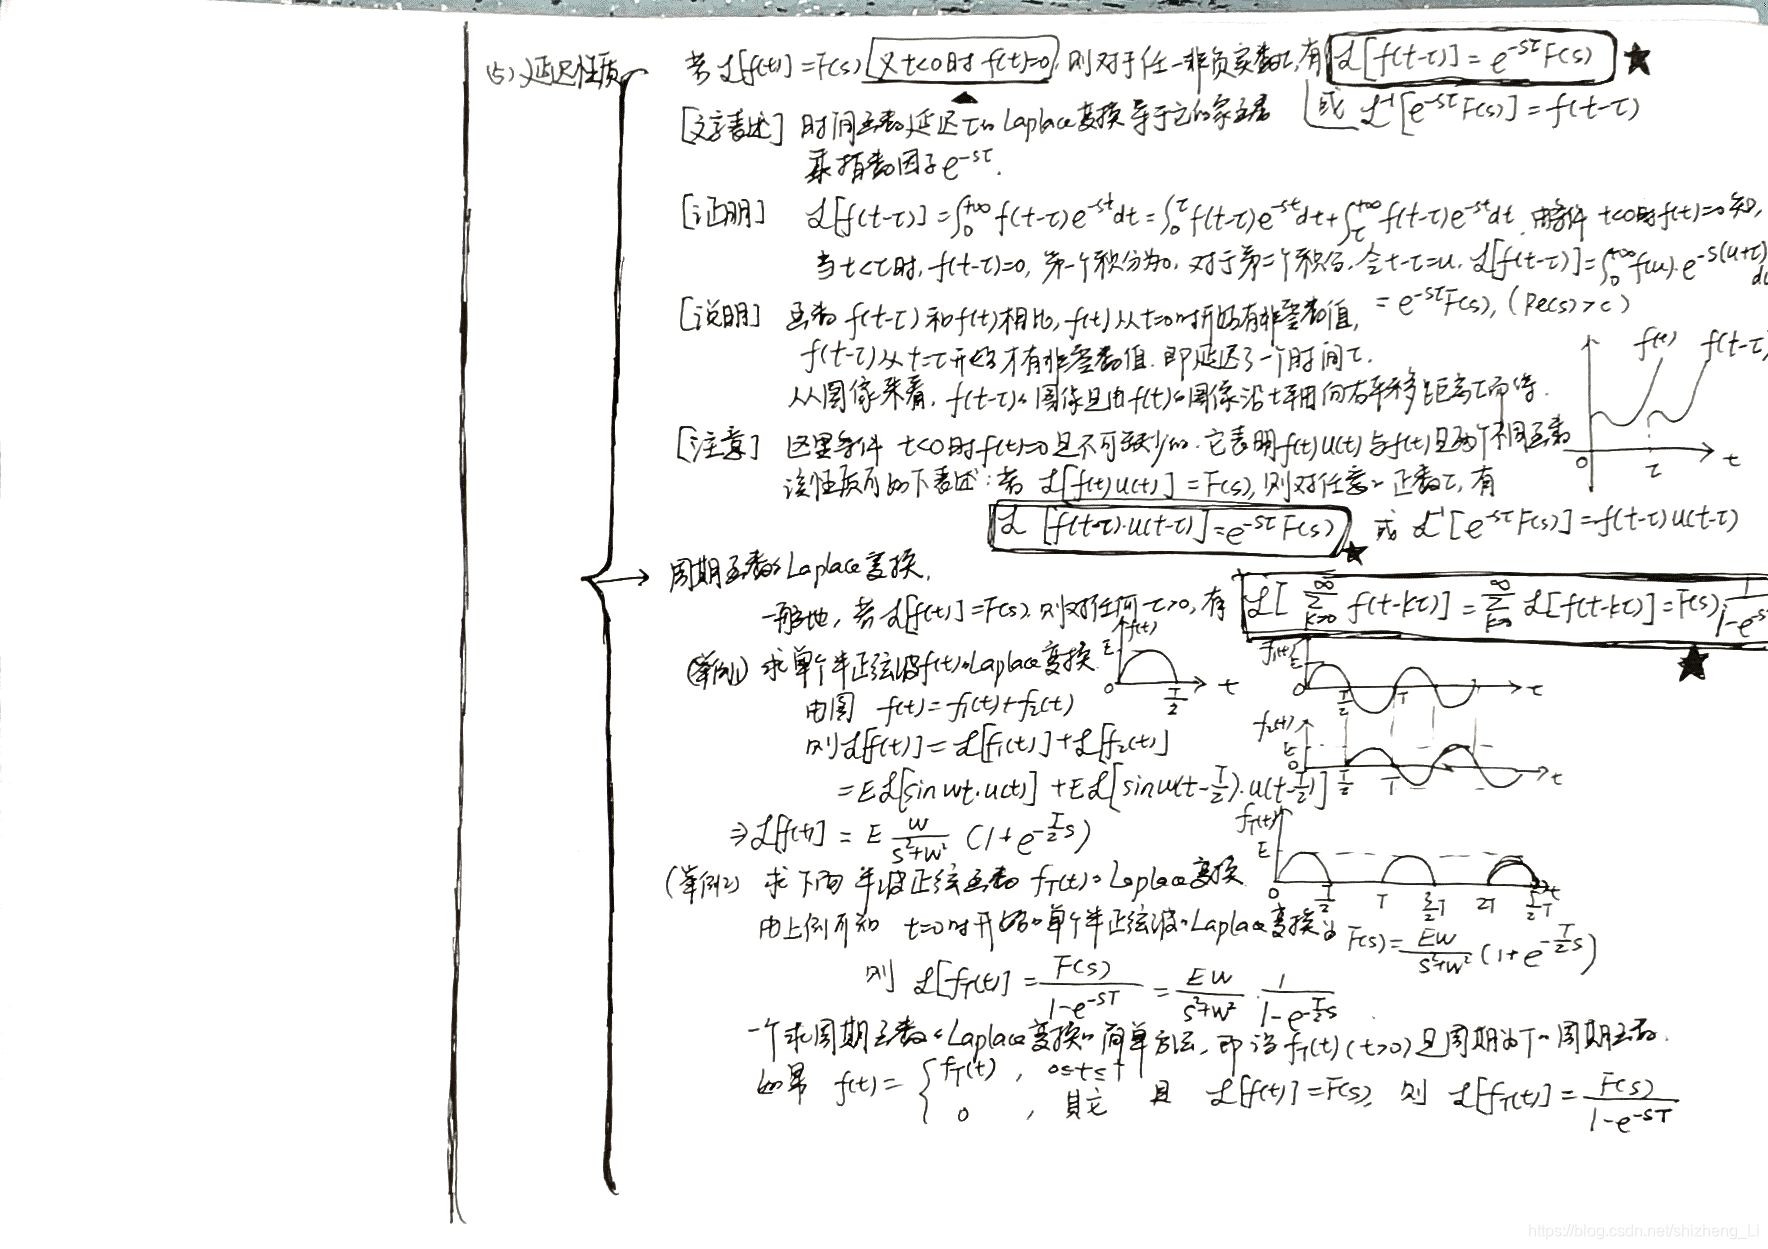 (5) 延迟性质
若 ℒ[f(t)]=F(s) 又t<0时 f(t)=0, 则对于任一非负实数τ, 有 ℒ[f(t-τ)] = e^{-sτ}F(s) ★
[文字表述] 时间函数延迟τ的Laplace变换等于它的象函数 或 ℒ^{-1}[e^{-sτ}F(s)] = f(t-τ)
乘指数因子e^{-sτ}.
[证明] ℒ[f(t-τ)] = ∫_0^{+∞} f(t-τ)e^{-st}dt = ∫_0^τ f(t-τ)e^{-st}dt + ∫_τ^{+∞} f(t-τ)e^{-st}dt, 由条件 t<0时f(t)=0知,
当t<τ时, f(t-τ)=0, 第一个积分为0, 对于第二个积分, 令t-τ=u, ℒ[f(t-τ)] = ∫_0^{+∞} f(u)·e^{-s(u+τ)} du
= e^{-sτ}F(s), (Re(s)>c)
[说明] 函数 f(t-τ) 和f(t)相比, f(t)从t=0时开始有非零数值,
f(t-τ)从t=τ开始才有非零数值. 即延迟了一个时间τ.
从图像来看, f(t-τ)的图像是由f(t)的图像沿t轴向右平移距离τ而得.
f(t) f(t-τ)
0 τ t
[注意] 这里条件 t<0时f(t)=0是不可缺少的. 它表明f(t)u(t)与f(t)是两个不同函数
该性质可如下表述: 若 ℒ[f(t)u(t)] = F(s), 则对任意的正数τ, 有
ℒ[f(t-τ)·u(t-τ)] = e^{-sτ}F(s) ★ 或 ℒ^{-1}[e^{-sτ}F(s)] = f(t-τ)u(t-τ)
周期函数的Laplace变换,
一般地, 若ℒ[f(t)]=F(s), 则对任何τ>0, 有 ℒ[∑_{k=0}^∞ f(t-kτ)] = ∑_{k=0}^∞ ℒ[f(t-kτ)] = F(s)·1/(1-e^{-s
★
(举例1) 求单个半正弦波f(t)的Laplace变换.
f(t) E 0 T/2 t
f₁(t) E 0 T/2 T t
由图 f(t) = f₁(t)+f₂(t)
f₂(t) E 0 T/2 T t
则ℒ[f(t)] = ℒ[f₁(t)]+ℒ[f₂(t)]
= Eℒ[sinwt·u(t)] + Eℒ[sinw(t-T/2)·u(t-T/2)]
⇒ℒ[f(t)] = E w/(s²+w²) (1+e^{-T/2 s})
f_T(t) E 0 T/2 T 3/2T 2T 5/2T t
(举例2) 求下面半波正弦函数 f_T(t)的Laplace变换
由上例可知 t=0时开始的单个半正弦波的Laplace变换为 F(s) = Ew/(s²+w²) (1+e^{-T/2 s})
则 ℒ[f_T(t)] = F(s)/(1-e^{-sT}) = Ew/(s²+w²) · 1/(1-e^{-T/2 s})
一个求周期函数的Laplace变换的简单方法, 即设f_T(t) (t>0)是周期为T的周期函数.
如果 f(t) = { f_T(t), 0≤t≤T
0, 其它 且 ℒ[f(t)]=F(s), 则 ℒ[f_T(t)] = F(s)/(1-e^{-sT})
https://blog.csdn.net/shizheng_Li